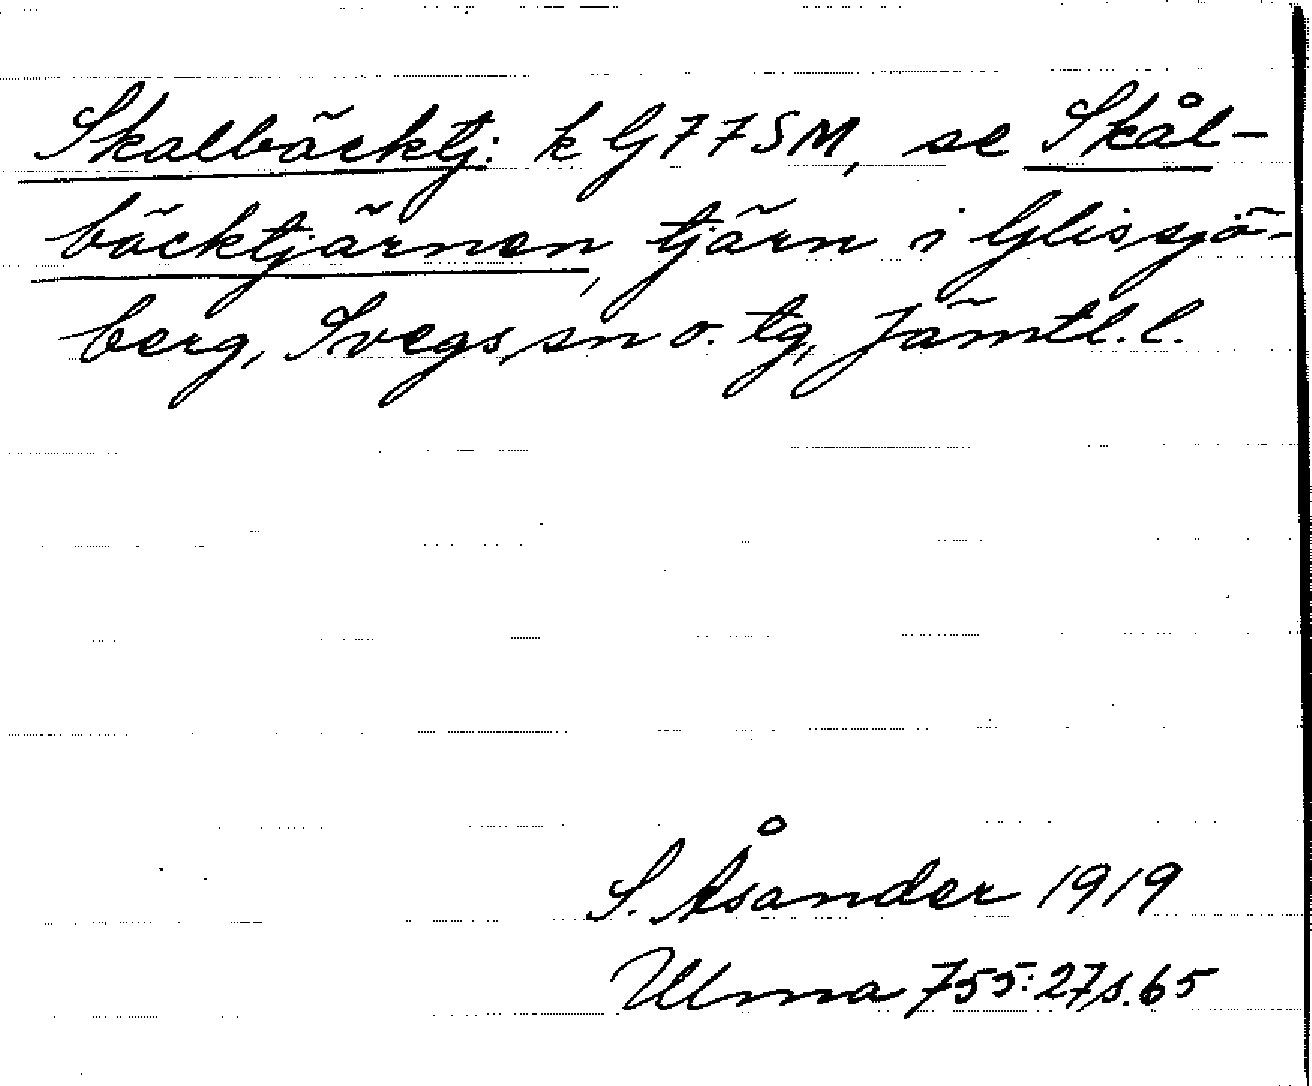 Skalbäcktj: k G77SM, se Skål-
bäcktjärnen, tjärn i Glissjö-
berg, Svegs sn o. tg, Jämtl. l.
S. Åsander 1919
Ulma 755:27 s. 65